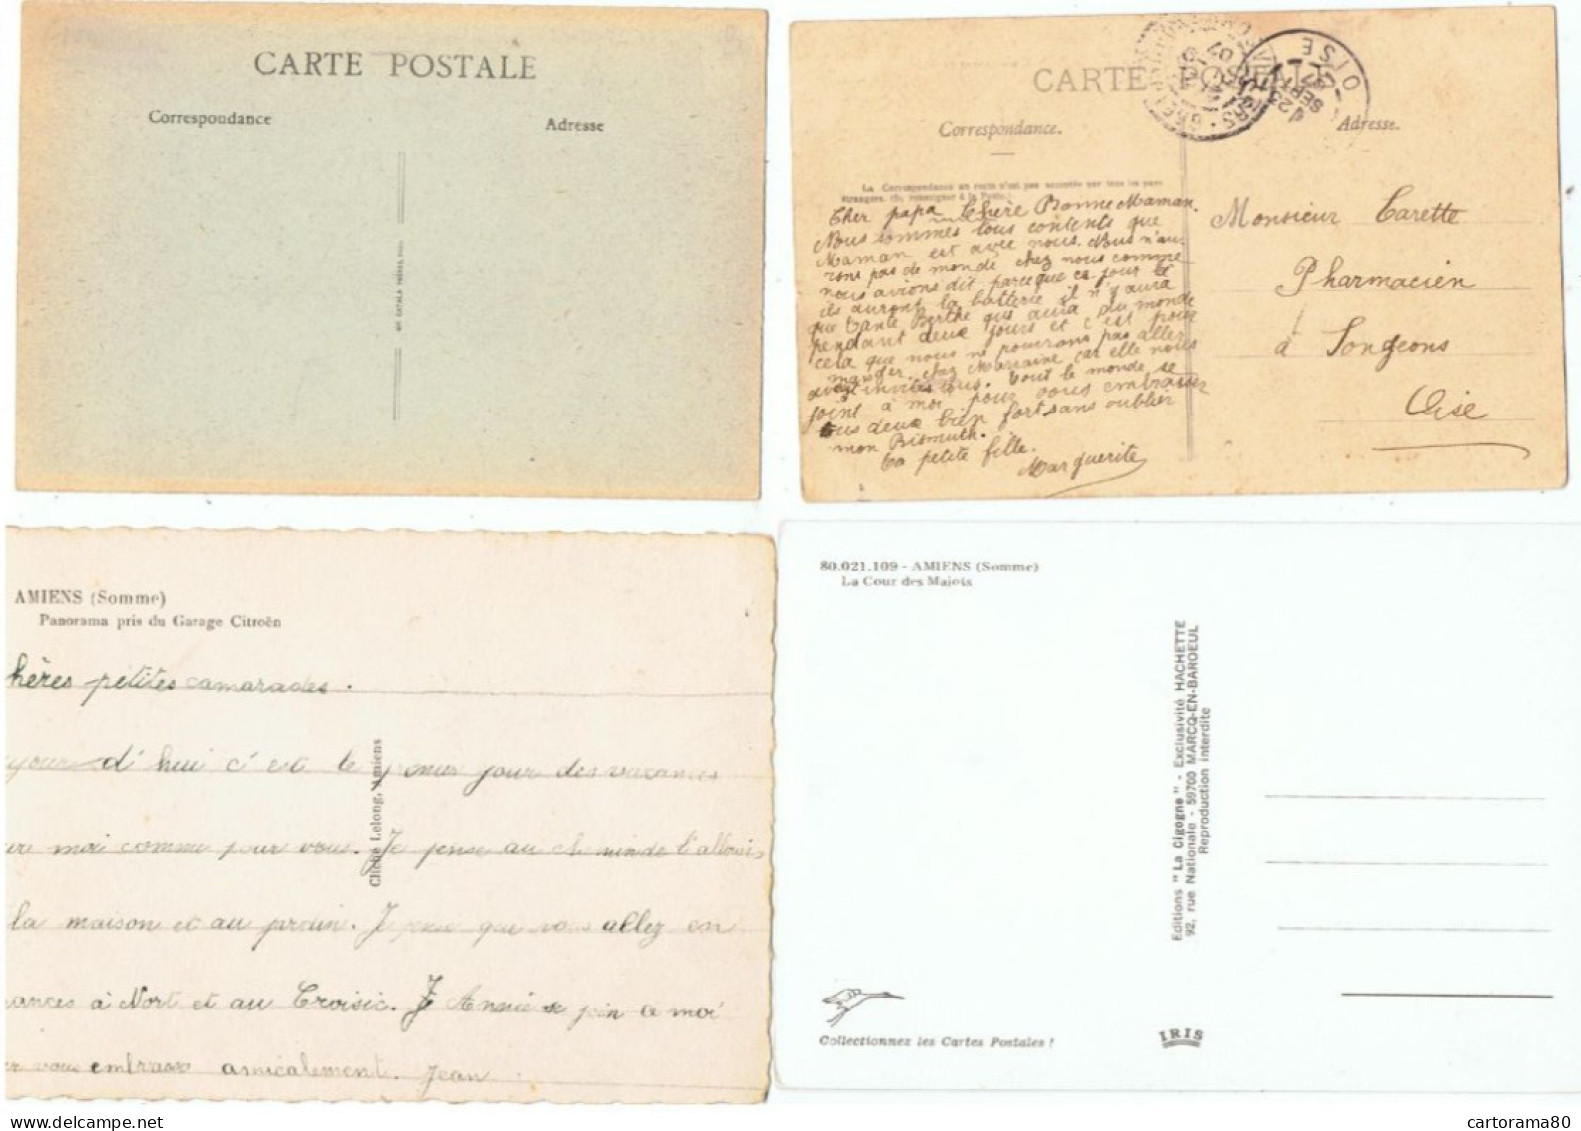 CARTE POSTALE
Correspondance
Adresse
CARTE POSTALE
OISE
Correspondance.
Adresse.
La Correspondance au recto n'est pas acceptée par tous les pays
étrangers. (Se renseigner à la Poste.)
Cher papa Chère Bonne Maman.
Nous sommes tous contents que
Maman est avec nous. Nous n'au-
rons pas de monde chez nous comme
nous avions dit parceque ce jour là
ils auront la batterie il n'y aura
que Tante Berthe qui aura du monde
pendant deux jours et c'est pour
cela que nous ne pourrons pas aller
manger chez Marraine car elle nous
avait invités tous. Tout le monde se
joint à moi pour vous embrasser
tous deux bien fort sans oublier
mon Bismuth.
Ta petite fille.
Marguerite
Monsieur Carette
Pharmacien
à Songeons
Oise
AMIENS (Somme)
Panorama pris du Garage Citroën
hères petites camarades.
jour d'hui c'est le premier jour des vacances
ur moi comme pour vous. Je pense au chemin de l'allouis
la maison et au jardin. Je pense que vous allez en
ances à Nort et au Croisic. Je Annie se join a moi
er vous embrasse amicalement. Jean
Cliché Lelong, Amiens
80.021.109 - AMIENS (Somme)
La Cour des Majots
Editions " La Cigogne " - Exclusivité HACHETTE
92, rue Nationale - 59700 MARCQ-EN-BAROEUL
Reproduction interdite
Collectionnez les Cartes Postales !
IRIS
cartorama80